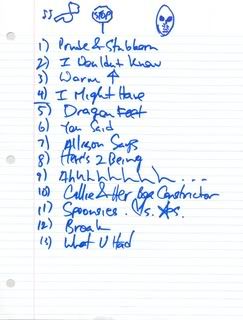 STOP
1) Prude & Stubborn
2) I Wouldn't Know
3) Warm ↑
4) I Might Have
5) Dragon Feet
6) You Said
7) Allison Says
8) Here's 2 Being
9) Ahhhhhhhhh...
10) Callie & Her Boa Constrictor
11) Spoonsies. Vs.
12) Break
13) What U Had